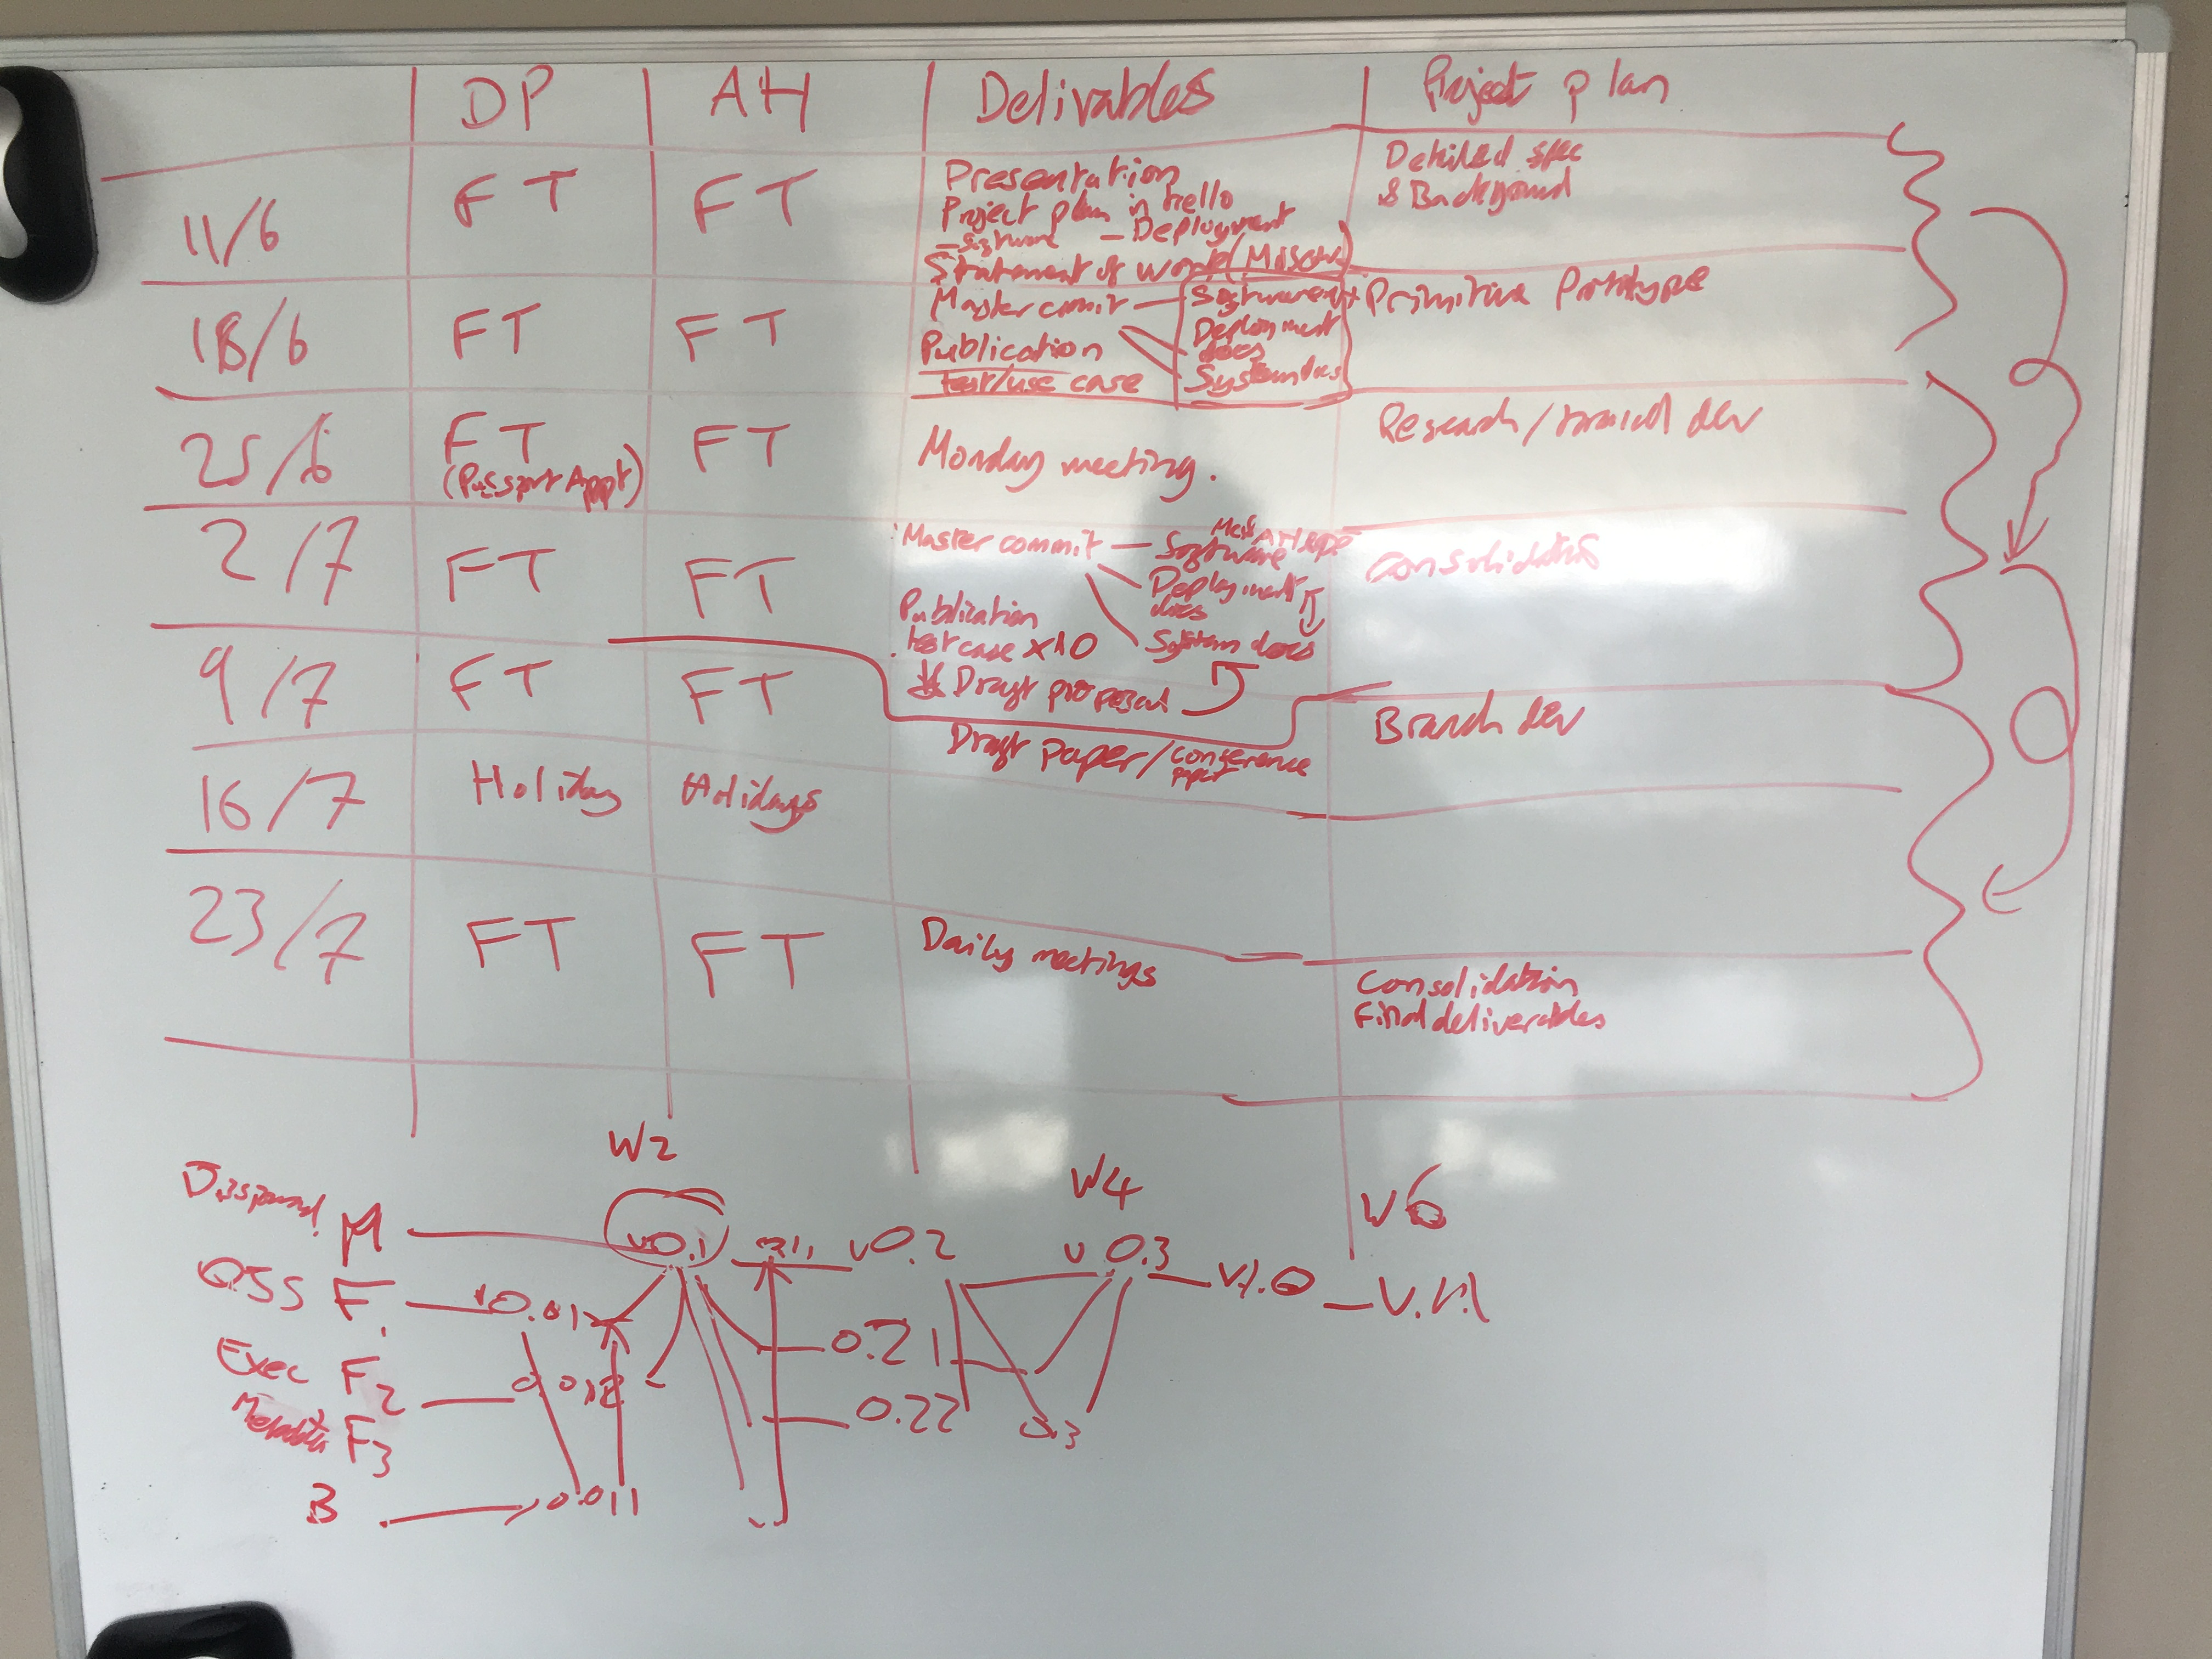 DP AH Delivables Project plan
11/6 FT FT
Presentation
Project plan in trello
- software - Deployment
Statement of work/
Detailed spec
& Background
18/6 FT FT
Master commit - Software
Deployment
docs
System docs
Publication
test/use case
Primitive Prototype
25/6 FT FT
(Passport Appt)
Monday meeting.
Research / dev
2/7 FT FT
Master commit - Software
Deployment
docs
System docs
Publication
test case x10
Draft proposal
Consolidation
9/7 FT FT
Draft paper/conference
paper
Branch dev
16/7 Holiday Holidays
23/7 FT FT
Daily meetings
Consolidation
Final deliverables
W2
W4
W6
M v0.1 v0.2 v0.3 V1.0
F
0.21
Exec F2
0.22
0.3
F3
B 0.011